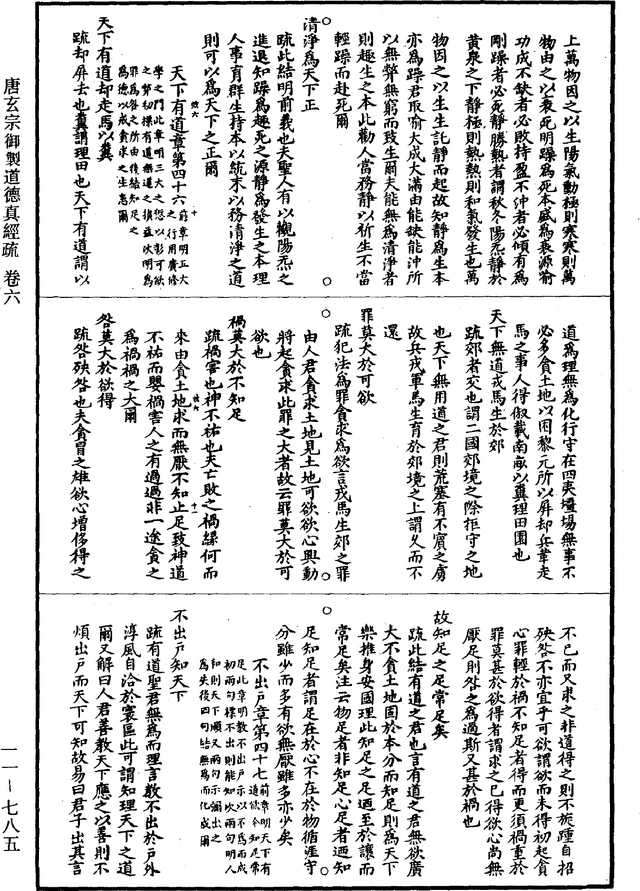 上萬物因之以生陽氣動極則寒寒則萬
物由之以衰死明躁為死本盛為衰源爾
功成不缺者必敗持盈不沖者必傾有為
剛躁者必死靜勝熱者謂秋冬陽炁靜於
黃泉之下靜極則熱熱則和氣發生也萬
物因之以生生託靜而起故知靜為生本
亦為躁君取喻大成大滿由能缺能沖所
以無弊無窮而致生爾夫能無為清淨者
則趣生之本此勸人當務靜以祈生不當
輕躁而赴死爾
清淨為天下正
疏此結明前義也夫聖人有以觀陽炁之
進退知躁為趣死之源靜為發生之本理
人事育群生持本以統末以務清淨之道
則可以為天下之正爾
天下有道章第四十六
前章明正大之行用廣修
學之門此章明三大之怨以彰可欲
之弊初標有道無道之損益次明為
罪為咎之所由後結知足之
為德以成貪求之生患爾
天下有道却走馬以糞
疏却屏去也糞謂理田也天下有道謂以
道為理無為化行守在四夷壃場無事不
必多貪土地以困黎元所以屏却兵革走
馬之事人得俶載南畝以糞理田園也
天下無道戎馬生於郊
疏郊者交也謂二國郊境之際拒守之地
也天下無用道之君則荒塞有不賓之虜
故兵戎軍馬生育於郊境之上謂久而不
還
罪莫大於可欲
疏犯法為罪貪求為欲言戎馬生郊之罪
由人君貪求土地見土地可欲欲心興動
將起貪求此罪之大者故云罪莫大於可
欲也
禍莫大於不知足
疏禍害也神不祐也夫亡敗之禍緣何而
來由貪土地求而無厭不知止足致神道
不祐而嬰禍害人之有過過非一途貪之
為禍禍之大爾
咎莫大於欲得
疏咎殃咎也夫貪冒之雄欲心增侈得之
不已而又求之非道得之則不旋踵自招
殃咎不亦宜乎可欲謂欲而未得初起貪
心罪輕於禍不知足者得而更須禍重於
罪莫甚於欲得者謂求之已得欲心尚無
厭足則咎之為過斯又甚於禍也
故知足之足常足矣
疏此結有道之君也言有道之君無欲廣
大不貪土地固於本分而知足則為天下
樂推身安國理此知足之足迺至於讓而
常足矣注云物足者非知足心足者迺知
足知足者謂足在於心不在於物循涯守
分雖少而多有欲無厭雖多亦少矣
不出戶章第四十七
前章明天下有
道欲令知足常
足此章明教不出戶示以不為而成
初兩句標不出則能知次兩句明人
和則天下順又兩句示彌出之
為失後四句結無為而化成爾
不出戶知天下
疏有道聖君無為而理言教不出於戶外
淳風自洽於寰區此可謂知理天下之道
爾又解曰人君善教天下應之以善則不
煩出戶而天下可知故易曰君子出其言
唐玄宗御製道德真經疏 卷六
一一—七八五